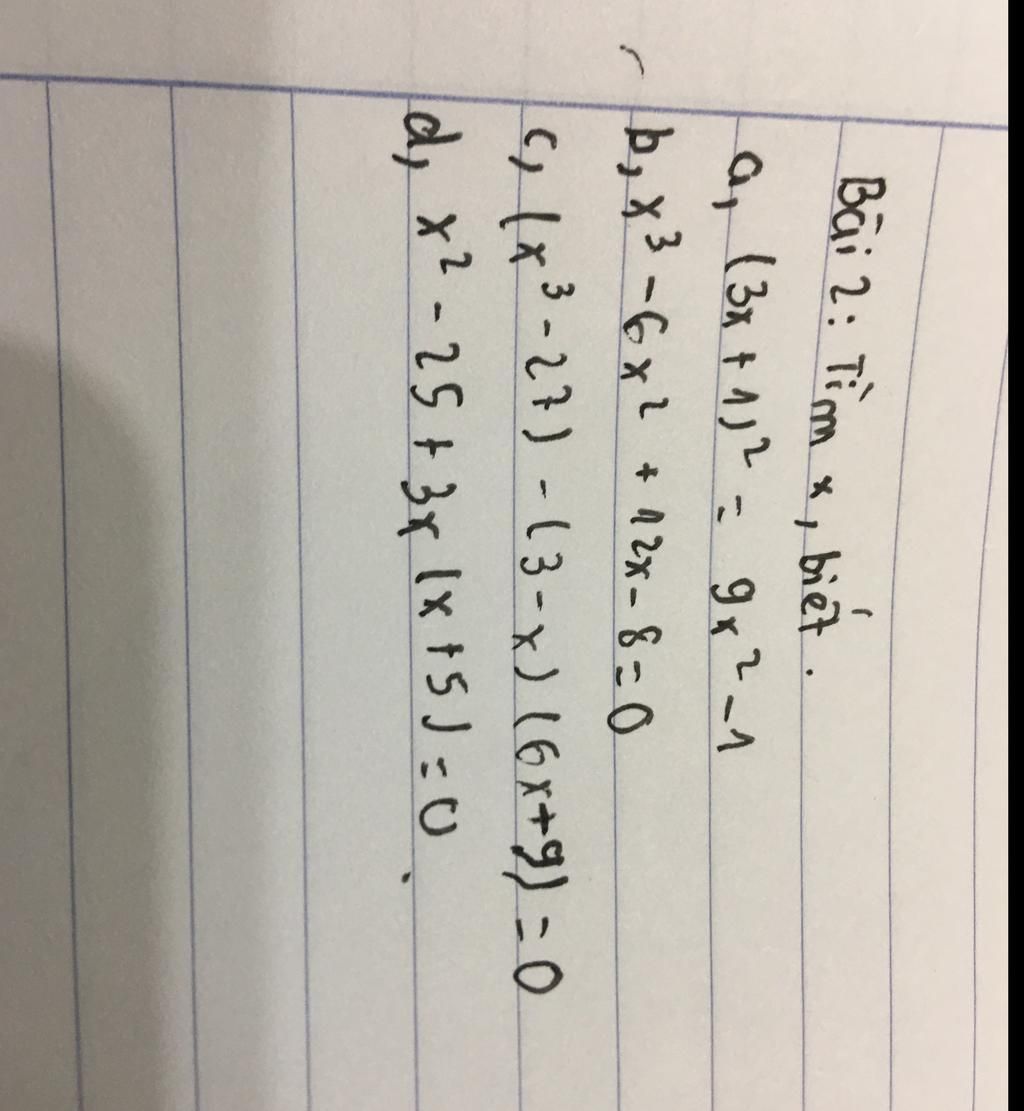 Bài 2: Tìm x, biết.
a, (3x + 1)² = 9x² - 1
b, x³ - 6x² + 12x - 8 = 0
c, (x³ - 27) - (3 - x)(6x + 9) = 0
d, x² - 25 + 3x (x + 5) = 0.